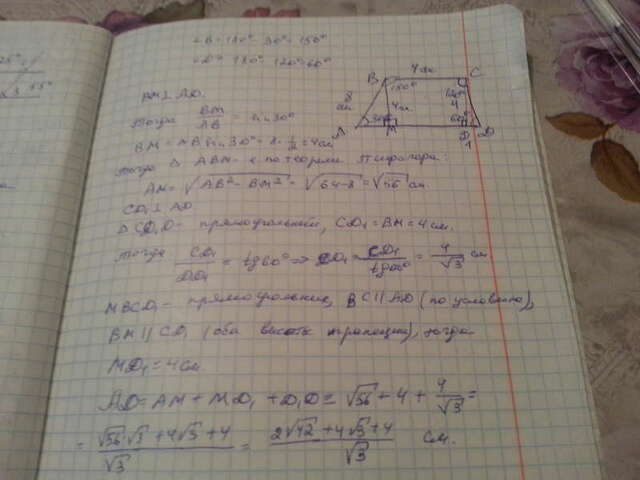 ∠B = 180° - 30° = 150°
∠D = 180° - 120° = 60°
BM ⊥ AD.
Тогда BM/AB = sin 30°
BM = AB sin 30° = 8 · 1/2 = 4 см
Тогда Δ ABM - по теореме Пифагора:
AM = √(AB² - BM²) = √(64 - 8) = √56 см.
CD₁ ⊥ AD
Δ CD₁D - прямоугольный, CD₁ = BM = 4 см.
Тогда CD₁/DD₁ = tg 60° => DD₁ = CD₁/tg 60° = 4/√3 см
MBCD₁ - прямоугольник, BC || AD (по условию),
BM || CD₁ (оба высоты трапеции), тогда
MD₁ = 4 см.
AD = AM + MD₁ + D₁D = √56 + 4 + 4/√3 =
= (√56 · √3 + 4√3 + 4)/√3 = (2√42 + 4√3 + 4)/√3 см.
B 4 см C
8 см
150°
120°
4 см
4
A 30° M 60° D₁ D
55°